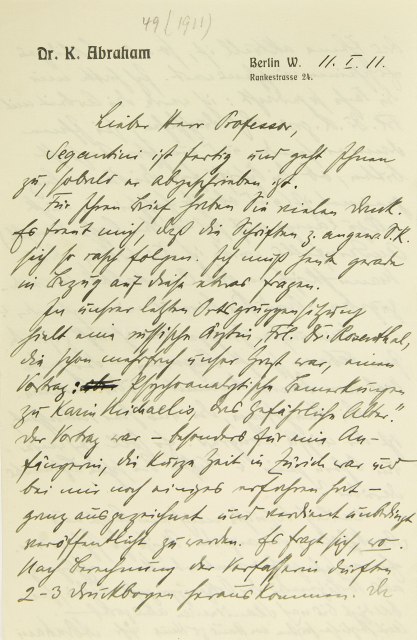 49 (1911)
Dr. K. Abraham
Berlin W. 11. I. 11.
Rankestrasse 24.
Lieber Herr Professor,
Segantini ist fertig und geht Ihnen
zu, sobald er abgeschrieben ist.
Für Ihren Brief haben Sie vielen Dank.
Es freut mich, daß die Schriften z. angew. S. K.
sich so rasch folgen. Ich muß heute gerade
in Bezug auf diese etwas fragen.
In unsrer letzten Ortsgruppensitzung
hielt eine russische Ärztin, Frl. Dr. Rosenthal,
die schon mehrfach unser Gast war, einen
Vortrag: Psychoanalytische Bemerkungen
zu Karin Michaelis, das gefährliche Alter."
Der Vortrag war – besonders für eine An-
fängerin, die kurze Zeit in Zürich war und
bei mir noch einiges erfahren hat –
ganz ausgezeichnet und verdient unbedingt
veröffentlicht zu werden. Es fragt sich, wo.
Nach Berechnung der Verfasserin dürften
2-3 Druckbogen herauskommen. Die